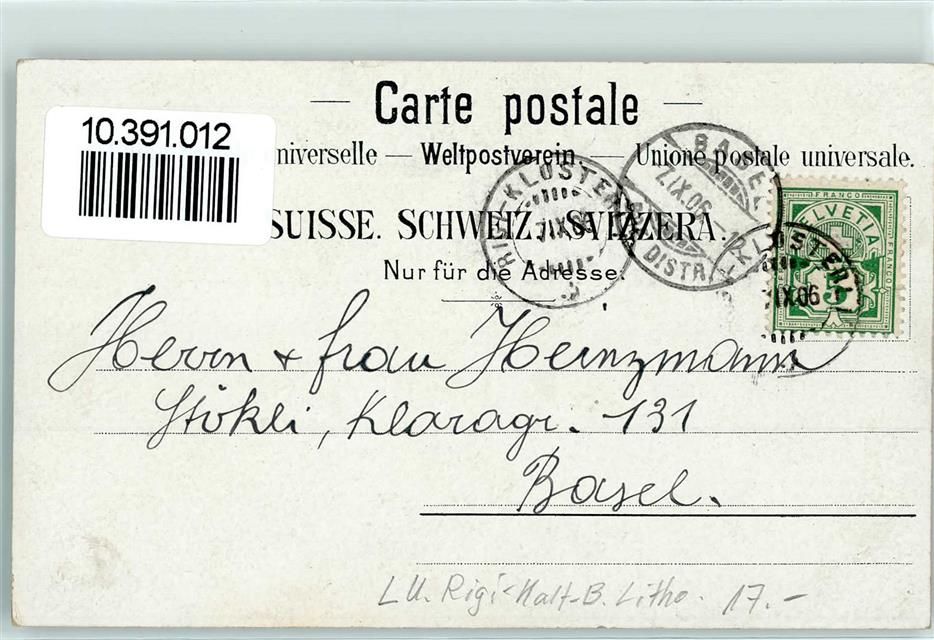 Carte postale
10.391.012
niverselle — Weltpostverein. — Unione postale universale.
SUISSE. SCHWEIZ. SVIZZERA.
Nur für die Adresse.
RIGI-KLÖSTERLI
7.IX.06
BASEL
7.IX.06.-12
DISTR.
KLÖSTERLI
IX.06
FRANCO
HELVETIA
5
Herrn & Frau Heinzmann
Stökli, Klaragr. 131
Basel.
LU. Rigi-Kalt-B. Litho. 17.-